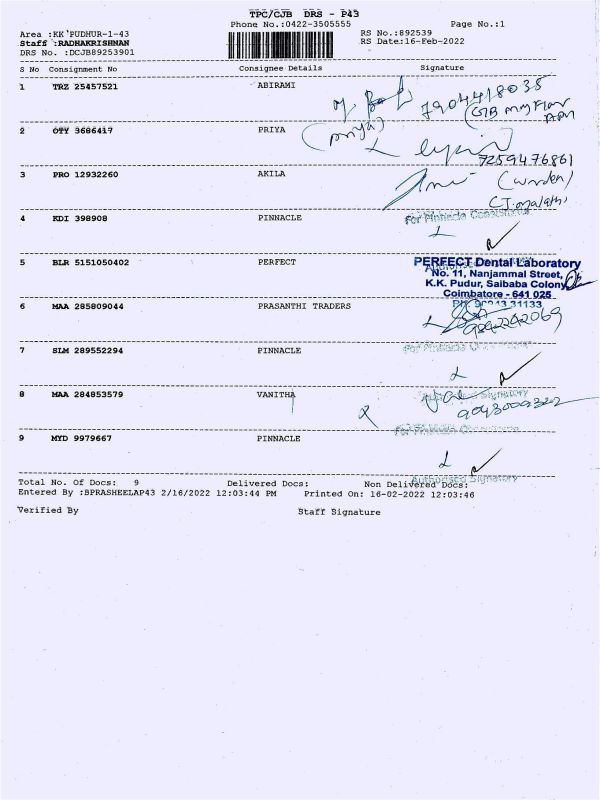 TPC/CJB DRS - P43
Phone No.:0422-3505555 Page No.:1
Area :KK PUDHUR-1-43 RS No.:892539
Staff :RADHAKRISHNAN RS Date:16-Feb-2022
DRS No. :DCJB89253901
S No Consignment No Consignee Details Signature
1 TRZ 25457521 ABIRAMI
7904418035
2 OTY 3686417 PRIYA
(priya)
7259476861
3 PRO 12932260 AKILA
(warden)
4 KDI 398908 PINNACLE
For Pinnacle
5 BLR 5151050402 PERFECT
PERFECT Dental Laboratory
No. 11, Nanjammal Street,
K.K. Pudur, Saibaba Colony,
Coimbatore - 641 025
6 MAA 285809044 PRASANTHI TRADERS
9842242069
7 SLM 289552294 PINNACLE
8 MAA 284853579 VANITHA
Signatory
9043009322
9 MYD 9979667 PINNACLE
Authorised Signatory
Total No. Of Docs: 9 Delivered Docs: Non Delivered Docs:
Entered By :BPRASHEELAP43 2/16/2022 12:03:44 PM Printed On: 16-02-2022 12:03:46
Verified By Staff Signature